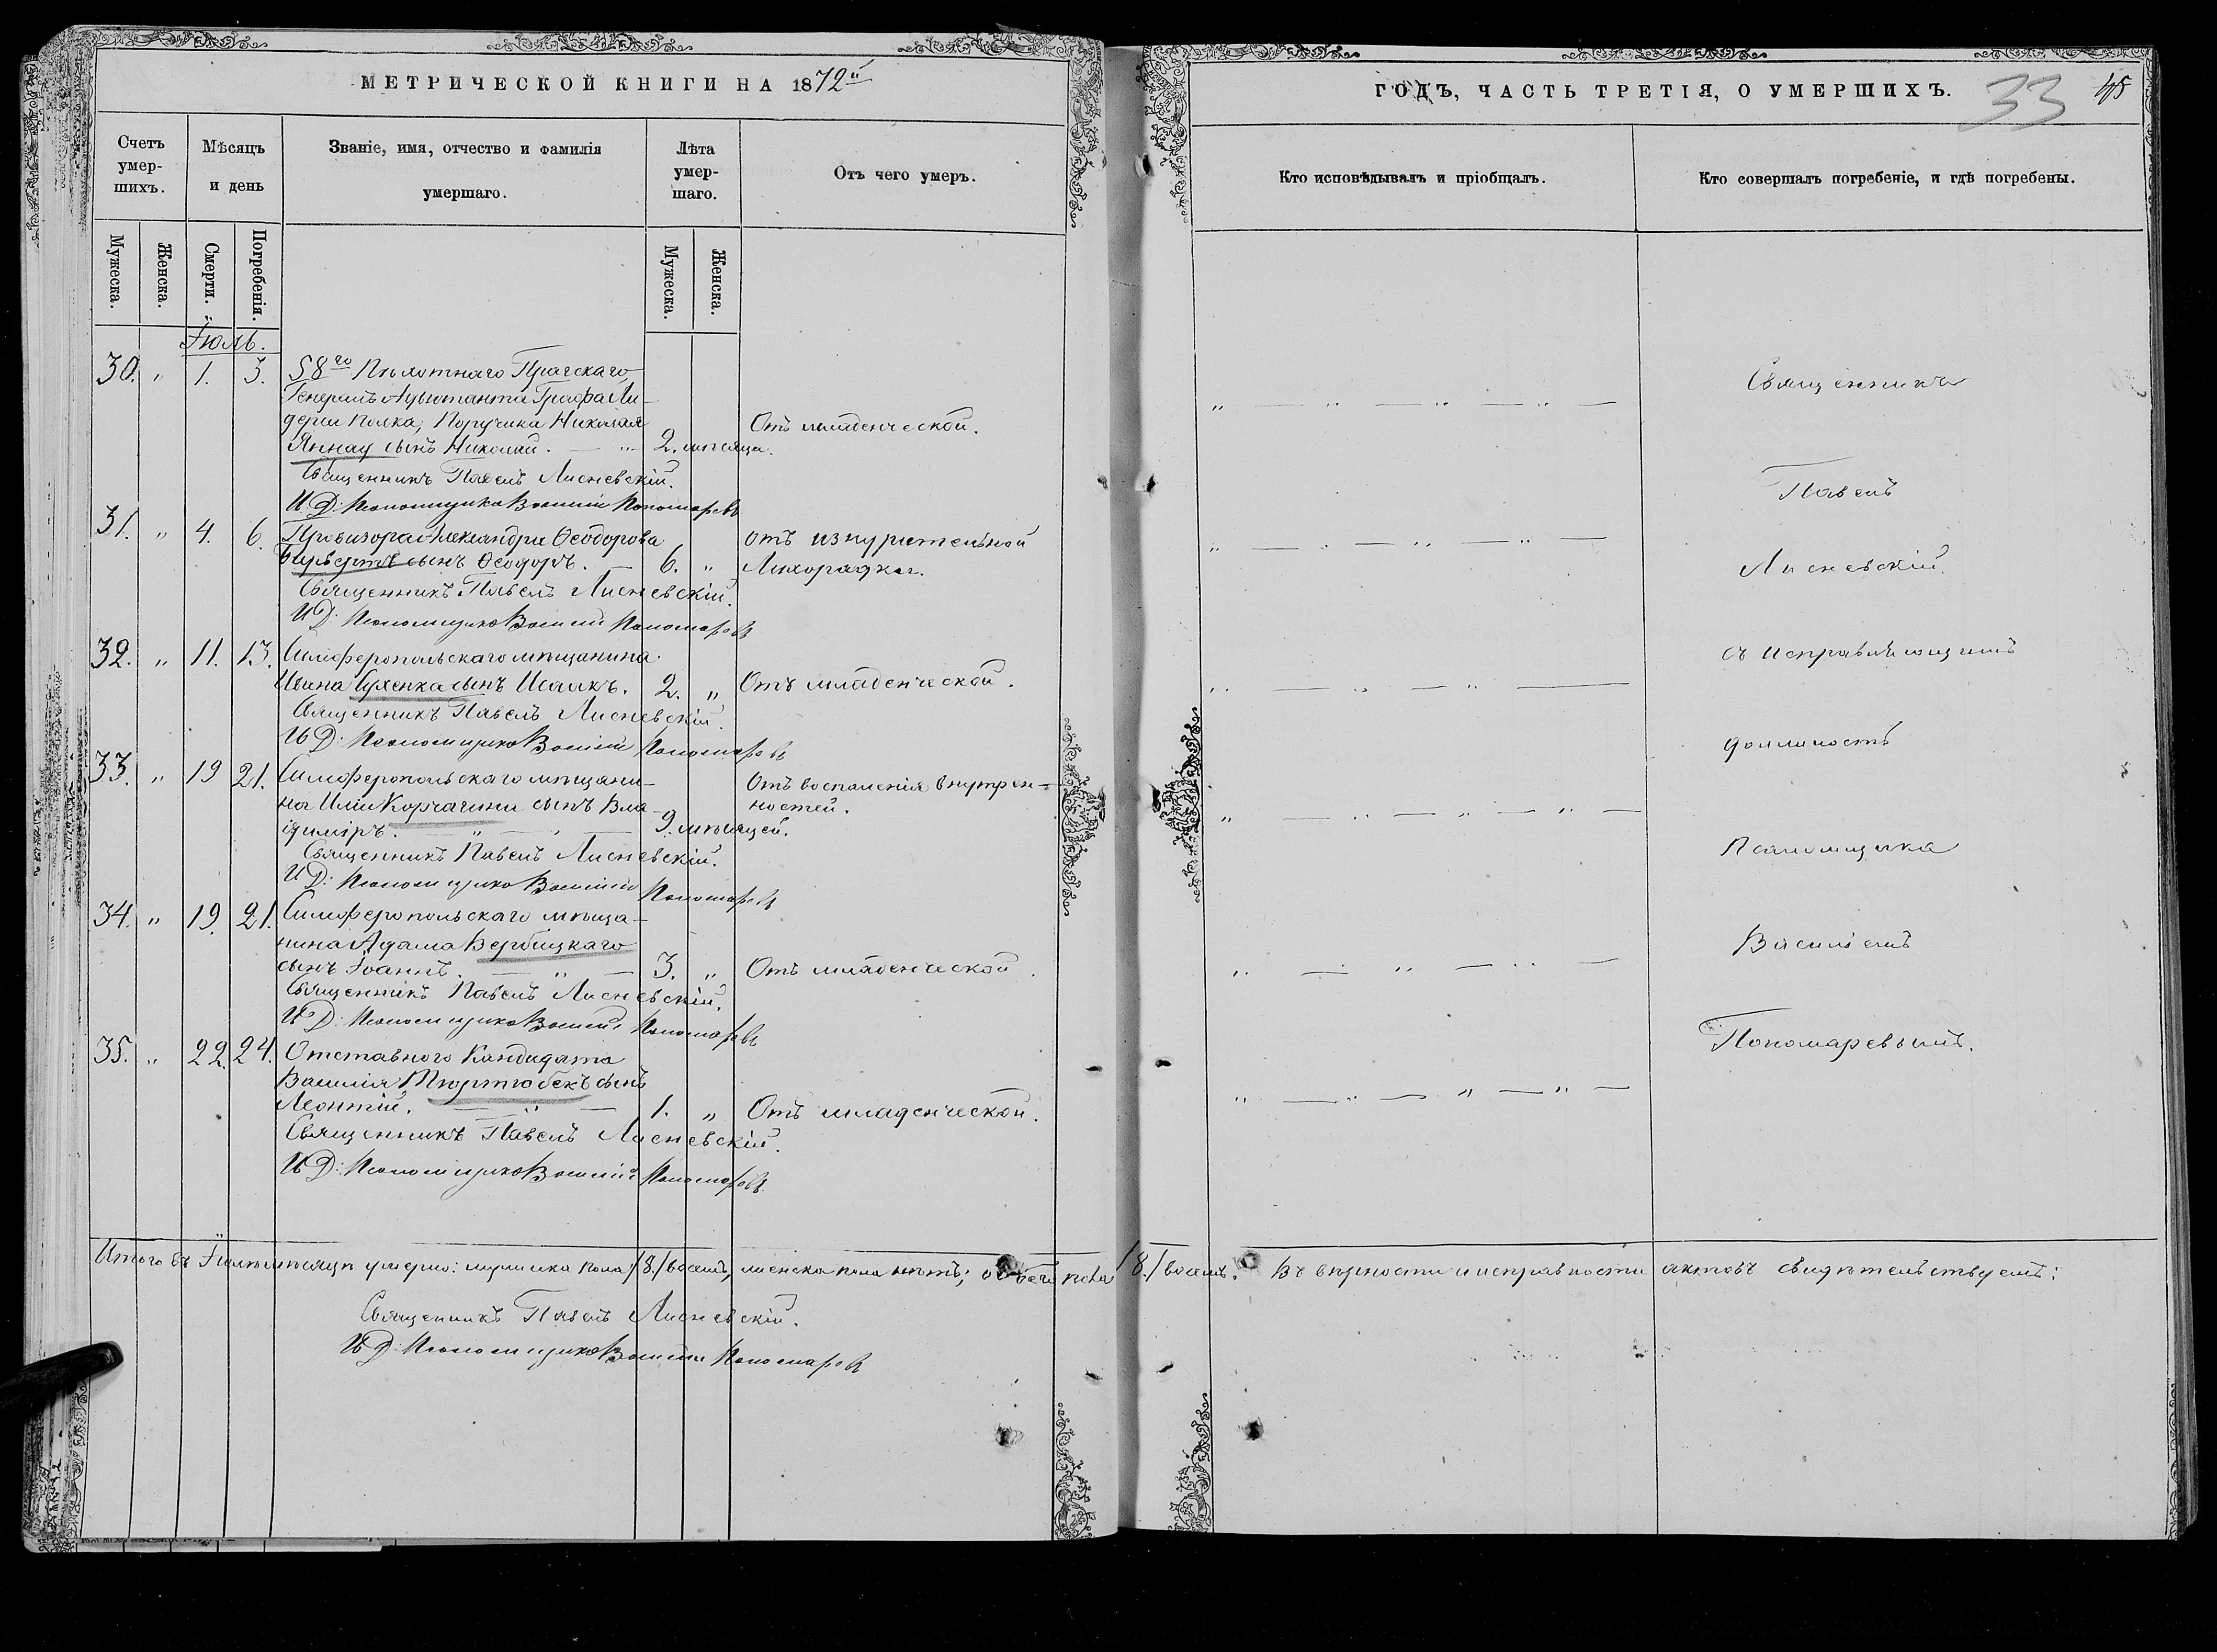 МЕТРИЧЕСКОЙ КНИГИ НА 1872й
ГОДЪ, ЧАСТЬ ТРЕТІЯ, О УМЕРШИХЪ.
33
Счетъ умер-шихъ.
Мѣсяцъ и день
Званіе, имя, отчество и фамилія умершаго.
Лѣта умер-шаго.
Отъ чего умеръ.
Кто исповѣдывалъ и пріобщалъ.
Кто совершалъ погребеніе, и гдѣ погребены.
Мужеска.
Женска.
Смерти.
Погребенія.
Мужеска.
Женска.
Іюль.
30. „ 1. 3. 58го Пѣхотнаго Прагскаго
Генералъ Адъютанта Графа Ли-
дерса полка, Поручика Николая
Яннау сынъ Николай. 2. мѣсяца. Отъ младенческой.
Священникъ Павелъ Лисневскій.
И Д: Псаломщика Василій Пономаревъ
31. „ 4. 6. Провизора Александра Ѳеодорова
сынъ Ѳеодоръ. 6. „ отъ изнурительной
Лихорадки.
Священникъ Павелъ Лисневскій.
И Д: Псаломщика Василій Пономаревъ
32. „ 11. 13. Симферопольскаго мѣщанина
Ивана сынъ Исаакъ. 2. „ Отъ младенческой.
Священникъ Павелъ Лисневскій.
И Д: Псаломщика Василій Пономаревъ
33. „ 19 21. Симферопольскаго мѣщани-
на Иліи Корчагина сынъ Вла-
димиръ. 9. мѣсяцей. Отъ воспаленія внутрен=
ностей.
Священникъ Павелъ Лисневскій.
И Д: Псаломщика Василій Пономаревъ
34. „ 19. 21. Симферопольскаго мѣща-
нина Адама Вербицкаго
сынъ Іоаннъ. 3. „ Отъ младенческой.
Священникъ Павелъ Лисневскій.
И Д: Псаломщика Василій Пономаревъ
35. „ 22. 24. Отставного Кандидата
Василія Тюртюбекъ сынъ
Леонтій. 1. „ Отъ младенческой.
Священникъ Павелъ Лисневскій.
И Д: Псаломщика Василій Пономаревъ
Священникъ
Павелъ
Лисневскій
съ исправляющимъ
должность
Псаломщика
Василіемъ
Пономаревымъ.
Итого въ Іюлѣ мѣсяцѣ умерло: мужеска пола /8./ восемь, женска пола нѣтъ; обоего пола /8./ восемь. Въ вѣрности и исправности актовъ свидѣтельствуемъ:
Священникъ Павелъ Лисневскій.
И Д: Псаломщика Василій Пономаревъ